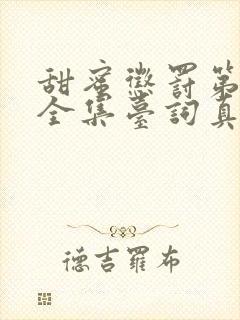 甜蜜懲罰第
全集臺詞真
德吉羅布